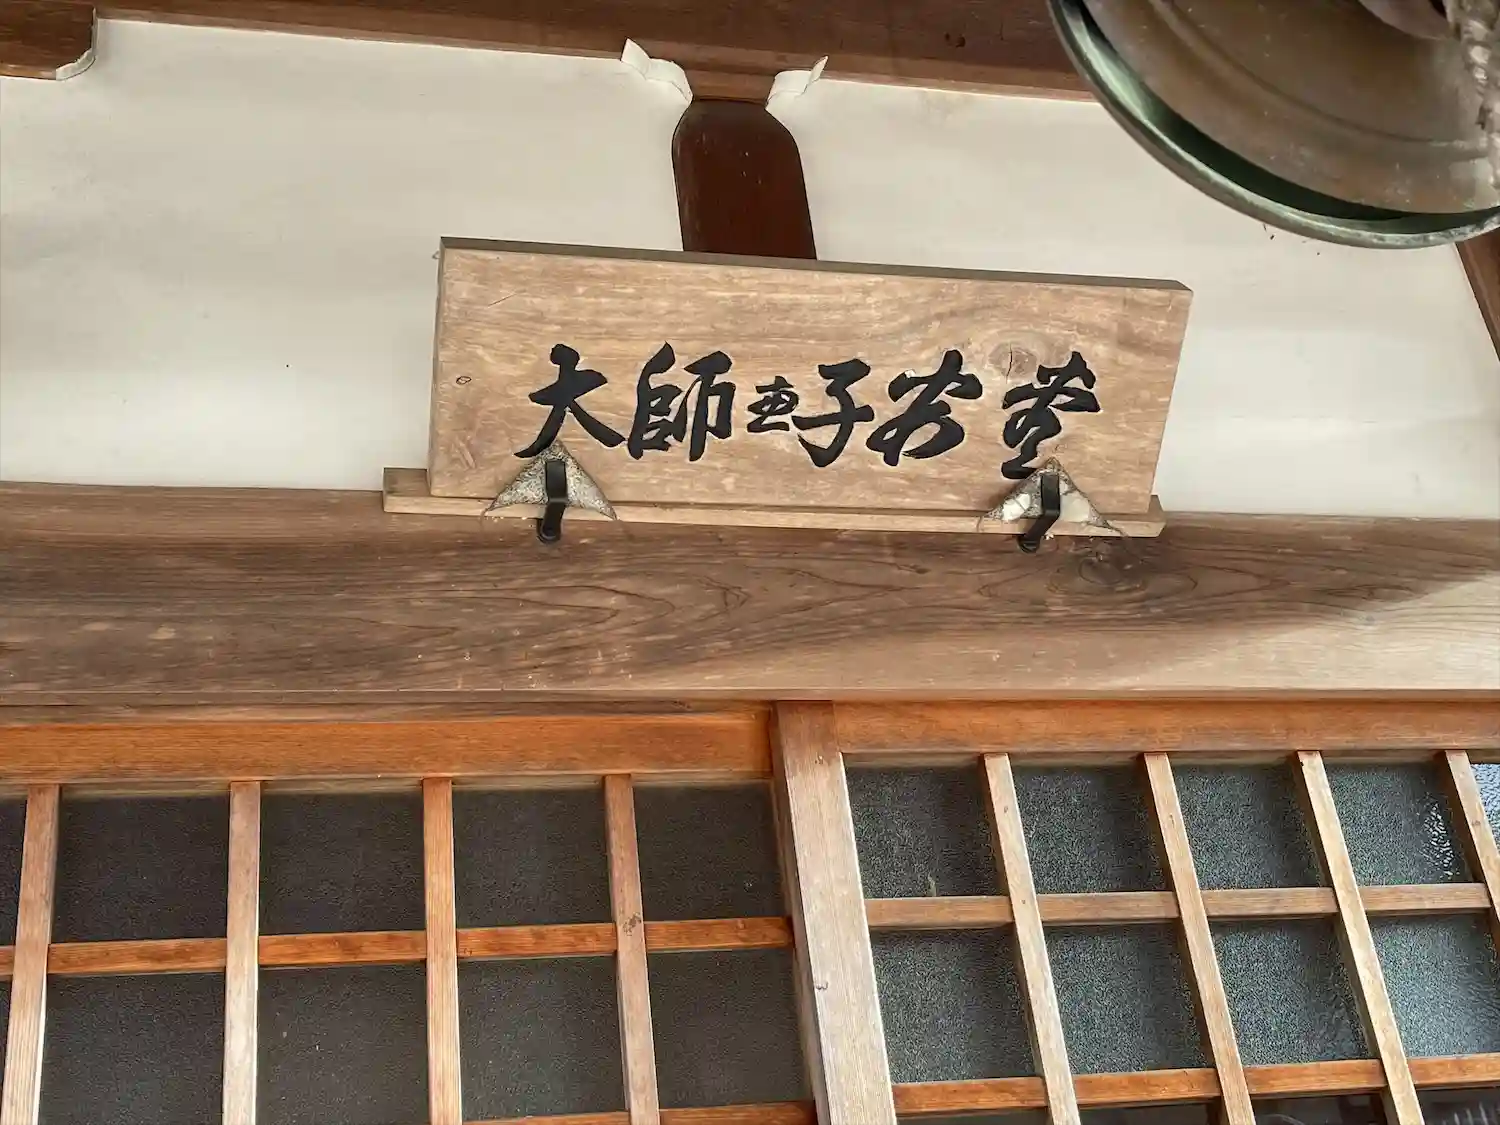 大師並子安堂